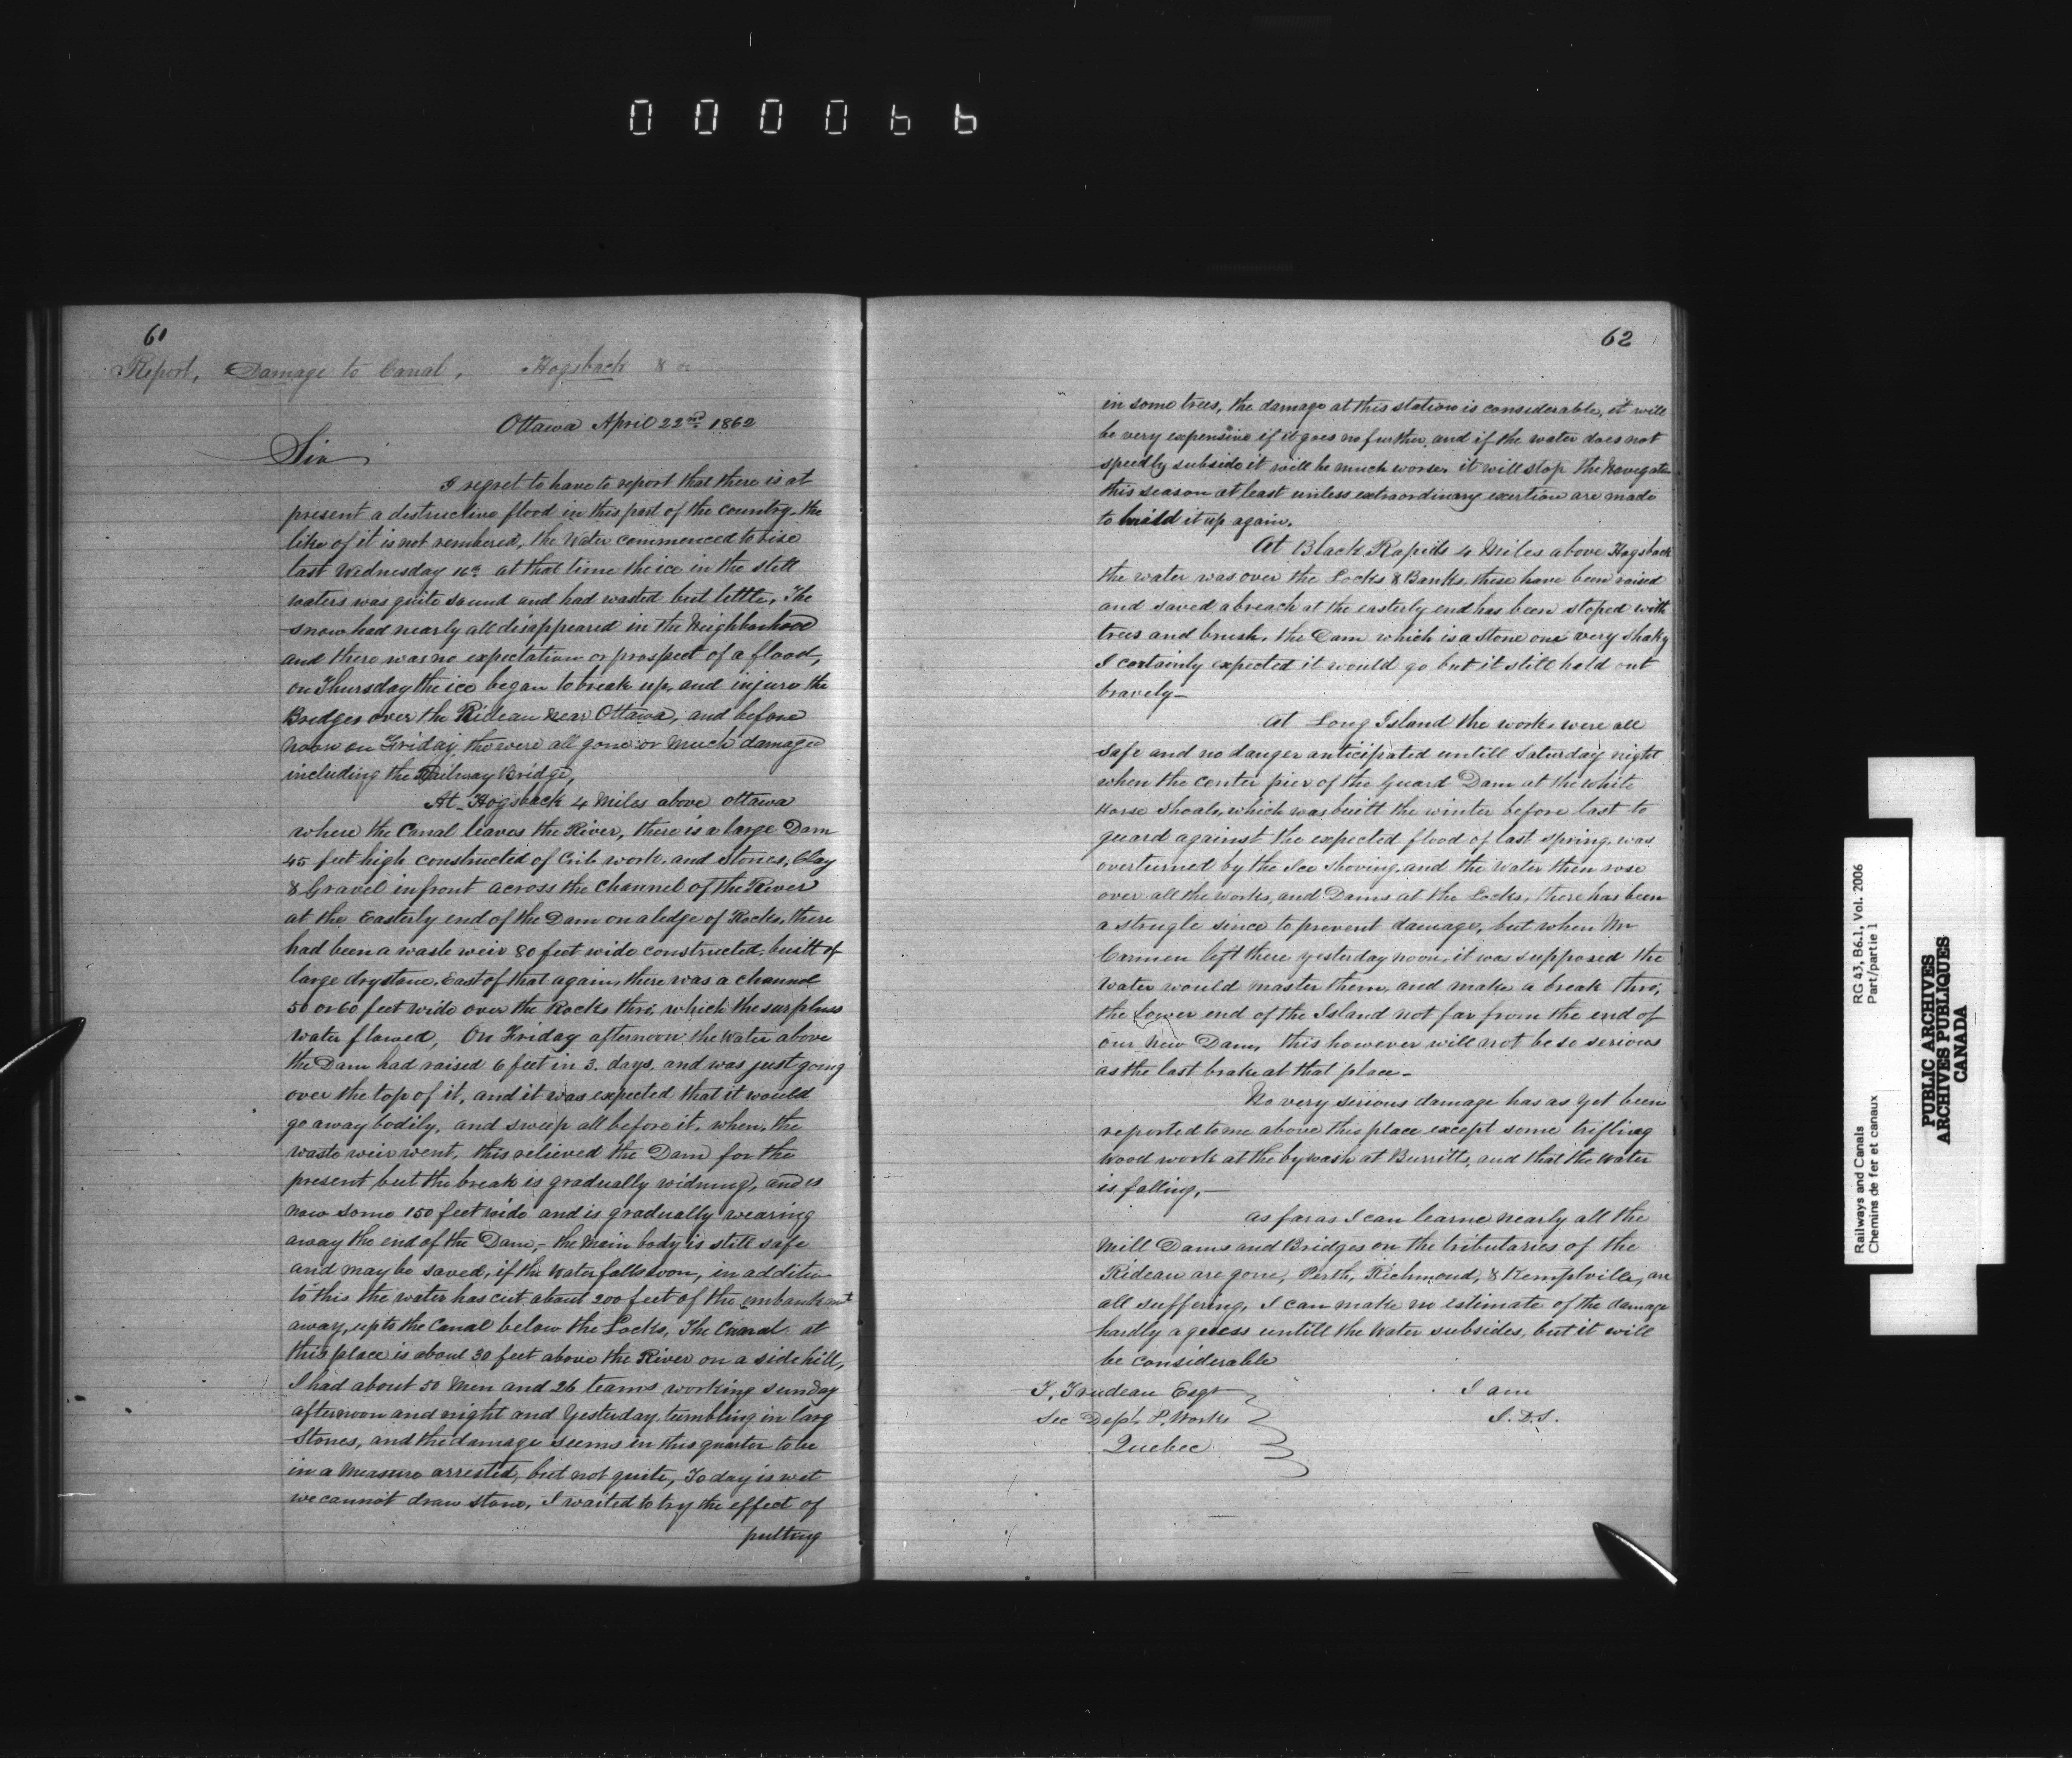 000066
61
Report, Damage to Canal, Hogsback &c
Ottawa April 22nd 1862
Sir
I regret to have to report that there is at
present a destructive flood in this part of the country, the
like of it is not rembered, the Water commenced to rise
last Wednesday 16th at that time the ice in the still
waters was quite sound and had wasted but little, The
snow had nearly all disappeared in the Neighborhood
and there was no expectation or prospect of a flood,
on Thursday the ice began to break up, and injure the
Bridges over the Rideau near Ottawa, and before
Noon on Friday the were all gone or much damaged
including the Railway Bridge,
At Hogsback 4 Miles above Ottawa
where the Canal leaves the River, there is a large Dam
45 feet high constructed of Crib work, and Stones, Clay
& Gravel infront across the channel of the River
at the Easterly end of the Dam on a ledge of Rocks, there
had been a waste weir 80 feet wide constructed, built of
large dry stone, East of that again, there was a channel
50 or 60 feet wide over the Rocks thro, which the surpluss
water flowed, On Friday afternoon the Water above
the Dam had raised 6 feet in 3. days, and was just going
over the top of it, and it was expected that it would
go away bodily, and sweep all before it, when, the
waste weir went, this relieved the Dam for the
present but the break is gradually widning, and is
now some 150 feet wide and is gradually wearing
away the end of the Dam,- the Main body is still safe
and may be saved, if the Water falls soon, in addition
to this the water has cut about 200 feet of the embankmt
away, up to the Canal below the Locks, The Canal at
this place is about 30 feet above the River on a side hill,
I had about 50 Men and 26 teams working sunday
afternoon and night and Yesterday, tumbling in larg
Stones, and the damage seems in this quarter to be
in a Measure arrested, but not quite, To day is wet
we cannot draw stone, I waited to try the effect of
putting
62
in some trees, the damage at this station is considerable, it will
be very expensive if it goes no further, and if the water does not
speedly subside it will be much worse, it will stop the Navegatn
this season at least unless extraordinary exertion are made
to build it up again.
At Black Rapids 4 Miles above Hogsback
the water was over the Locks & Banks, these have been raised
and saved a breach at the easterly end has been stoped with
trees and brush, the Dam which is a Stone one very shaky
I certainly expected it would go but it still hold out
bravely-
At Long Island the works were all
safe and no danger anticipated untill Saturday night
when the center pier of the Guard Dam at the White
Horse Shoals, which was built the winter before last to
guard against the expected flood of last spring, was
overturned by the Ice shoving, and the Water then rose
over all the works, and Dams at the Locks, there has been
a strugle since to prevent damage, but when Mr
Carmen left there yesterday noon, it was supposed the
Water would master them, and make a break thro,
the Lower end of the Island not far from the end of
our New Dam, this however will not be so serious
as the last brake at that place-
No very serious damage has as yet been
reported to me above this place except some trifling
wood work at the bywash at Burritts, and that the water
is falling,-
as far as I can learne nearly all the
Mill Dams and Bridges on the tributaries of the
Rideau are gone, Perth, Richmond, & Kemptville, are
all suffering, I can make no estimate of the damage
hardly a guess untill the Water subsides, but it will
be considerable
T, Trudeau Esqr
Sec Dept. P. Works
Quebec.
I am
J. D. S.
Railways and Canals
Chemins de fer et canaux
RG 43, B6.1, Vol. 2006
Part/partie 1
PUBLIC ARCHIVES
ARCHIVES PUBLIQUES
CANADA